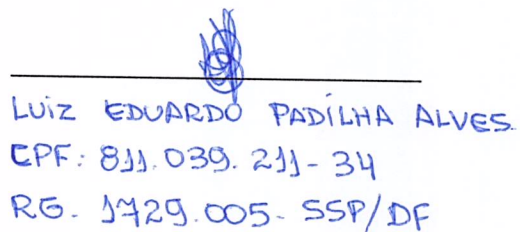 LUIZ EDUARDO PADILHA ALVES.
CPF: 811.039.211-34
RG. 1729.005- SSP/DF